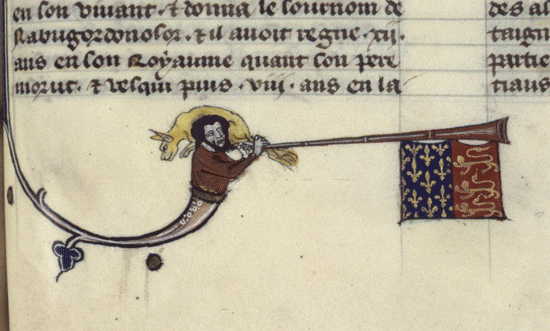 en son vivant · et donna le sournom de
Nabugordonosor · et il auoit regne · xii ·
ans en son royaume quant son pere
morut · et vesqui puis · viii · ans en la
des as
taign
partie
tiaus